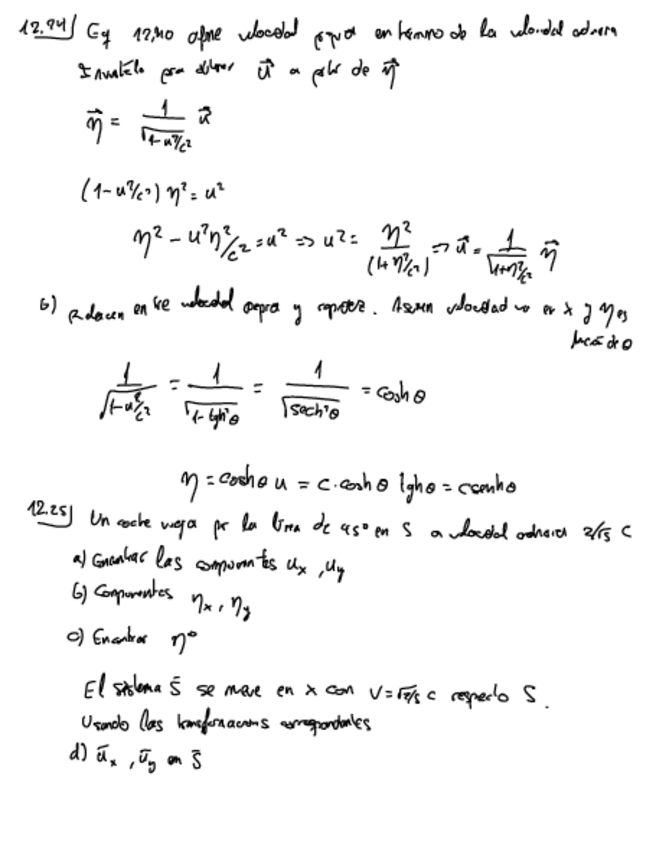 12.24/ Eq 12,40 define velocidad propia en término de la velocidad ordinaria
Inviertela para obtener u⃗ a partir de η⃗
η⃗ = 1/√(1-u²/c²) u⃗
(1-u²/c²) η² = u²
η² - u²η²/c² = u² => u² = η²/(1+η²/c²) => u⃗ = 1/√(1+η²/c²) η⃗
b) Relacion entre velocidad propia y rapidez. Asumen velocidad en x y η es
función de θ
1/√(1-u²/c²) = 1/√(1-tgh²θ) = 1/√(sech²θ) = coshθ
η = coshθ u = c·coshθ tghθ = c senhθ
12.25/ Un coche viaja por la linea de 45° en S a velocidad ordinaria 2/√5 c
a) Encontrar las componentes uₓ, u_y
b) Componentes ηₓ, η_y
c) Encontrar η⁰
El sistema S̄ se mueve en x con V=√2/5 c respecto S.
Usando las transformaciones correspondientes
d) ūₓ, ū_y en S̄